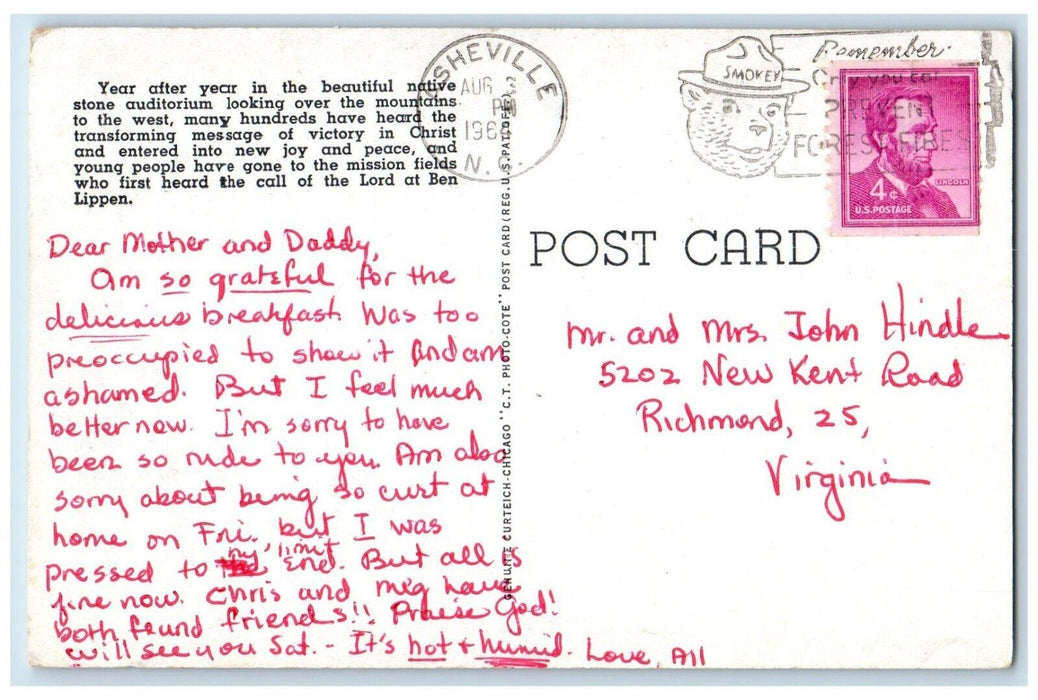 Year after year in the beautiful native
stone auditorium looking over the mountains
to the west, many hundreds have heard the
transforming message of victory in Christ
and entered into new joy and peace, and
young people have gone to the mission fields
who first heard the call of the Lord at Ben
Lippen.
ASHEVILLE
AUG
PM
1962
N.C.
SMOKEY
Remember.
Only you can
PREVENT
FOREST FIRES
LINCOLN
4¢
U.S. POSTAGE
Dear Mother and Daddy,
Am so grateful for the
delicious breakfast. Was too
preoccupied to show it and am
ashamed. But I feel much
better now. I'm sorry to have
been so rude to you. Am also
sorry about being so curt at
home on Fri. but I was
pressed to my limit End. But all is
fine now. Chris and meg have
both found friends!! Praise God!
will see you Sat. - It's hot + humid. Love, All
GENUINE CURTEICH-CHICAGO "C.T. PHOTO-COTE" POST CARD (REG. U.S. PAT. OFF.)
POST CARD
Mr. and Mrs. John Hindle
5202 New Kent Road
Richmond, 25,
Virginia